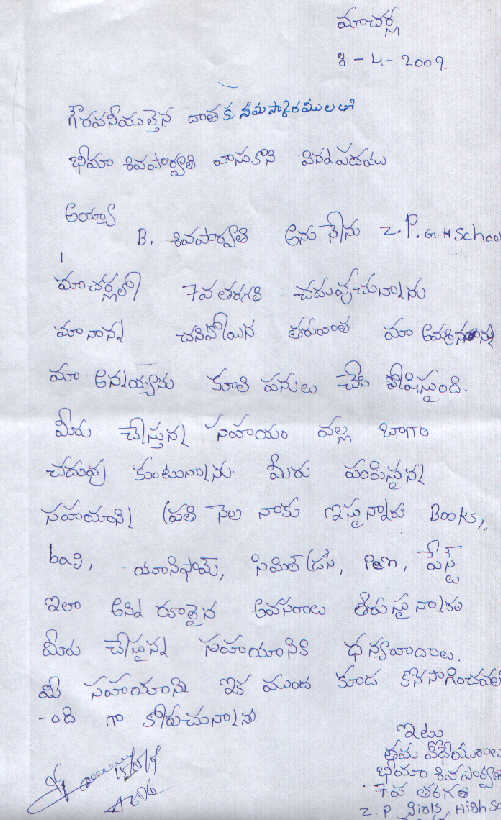 మాచర్ల
8-4-2009
గౌరవనీయులైన దాతకు నమస్కారములతో
భీమా శివపార్వతి వ్రాసుకొని విన్నపము
అయ్యా
B. శివపార్వతి అను నేను Z.P. G. H. School
మాచర్లలో 7వ తరగతి చదువుచున్నాను
మా నాన్న చనిపోయిన తరువాత మా
మా అన్నయ్యను కూలి పనులు చేసి పోషిస్తుంది.
మీరు చేస్తున్న సహాయం వల్ల బాగా
చదువు కుంటున్నాను. మీరు పంపిస్తున్న
సహాయాన్ని ప్రతి నెల నాకు ఇస్తున్నారు Books,
bag, యూనిఫామ్, సివిల్ డ్రస్, Pen, పేస్ట్
ఇలా అన్ని రకాలైన అవసరాలు తీరుస్తున్నారు
మీరు చేస్తున్న సహాయానికి ధన్యవాదాలు.
మీ సహాయాన్ని ఇక ముందు కూడ కొనసాగించవల
-ంది గా కోరుచున్నాను
ఇట్లు
తమ విధేయురాలు
భీమా శివపార్వతి
7వ తరగతి
Z. P Girls, High Sc